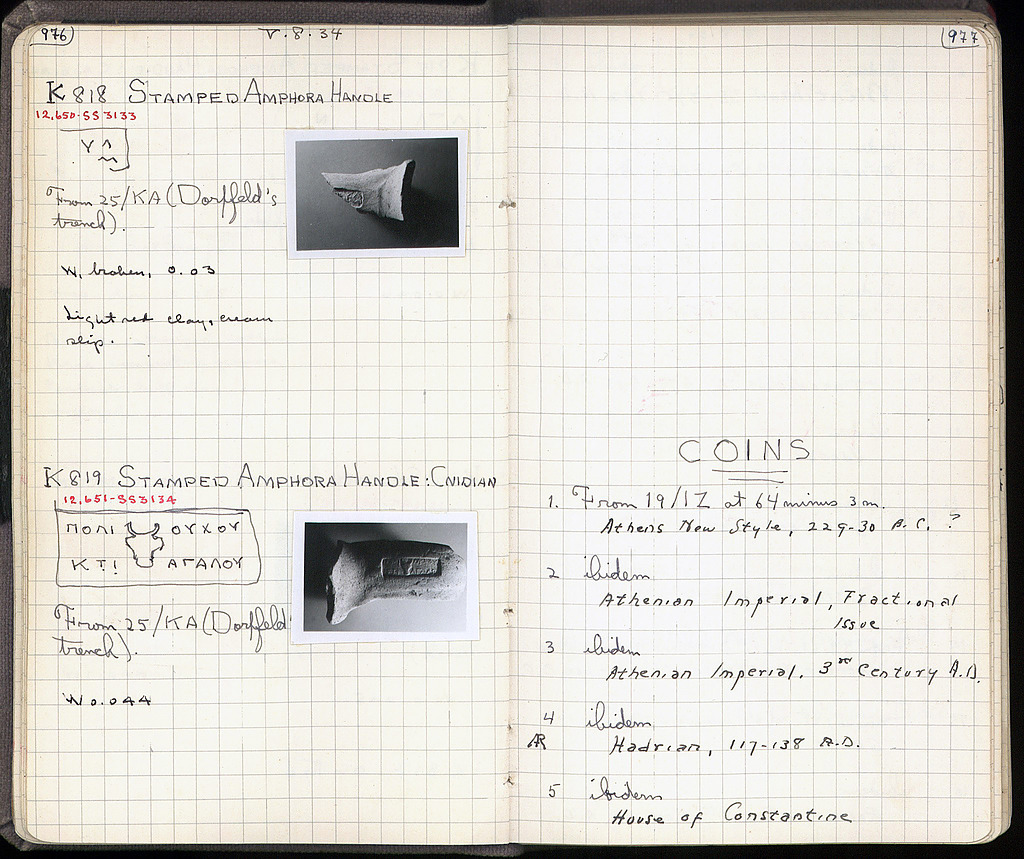 976
V.8.34
K 818 STAMPED AMPHORA HANDLE
12,650-SS 3133
From 25/KA (Dorpfeld's
trench).
W. broken, 0.03
Light red clay, cream
slip.
K 819 STAMPED AMPHORA HANDLE: CNIDIAN
12,651-SS3134
ΠΟΛΙ ΟΥΧΟΥ
ΚΤΙ ΑΓΑΛΟΥ
From 25/KA (Dorpfeld
trench).
W 0.044
977
COINS
1. From 19/IZ at 64 minus 3 m.
Athens New Style, 229-30 B.C. ?
2 ibidem
Athenian Imperial, Fractional
Issue
3 ibidem
Athenian Imperial. 3rd Century A.D.
4 ibidem
AR Hadrian, 117-138 A.D.
5 ibidem
House of Constantine